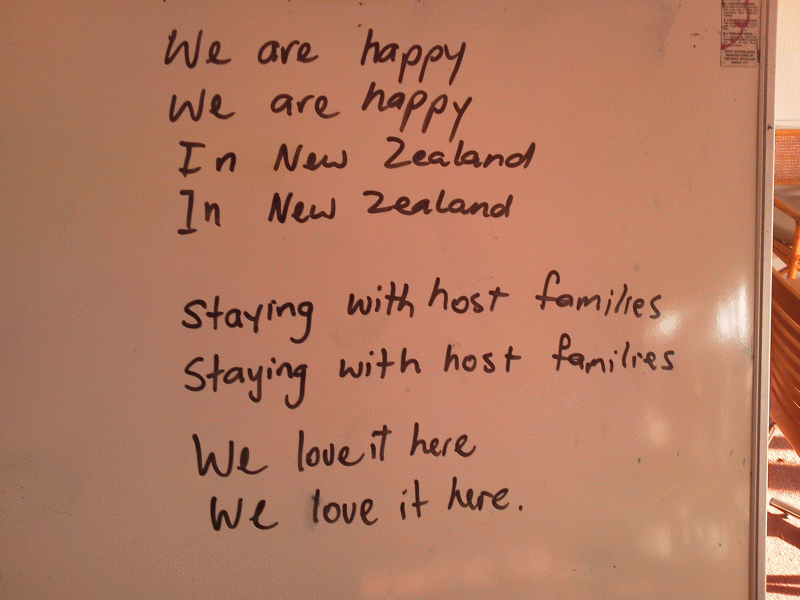 We are happy
We are happy
In New Zealand
In New Zealand
Staying with host families
Staying with host families
We love it here
We love it here.